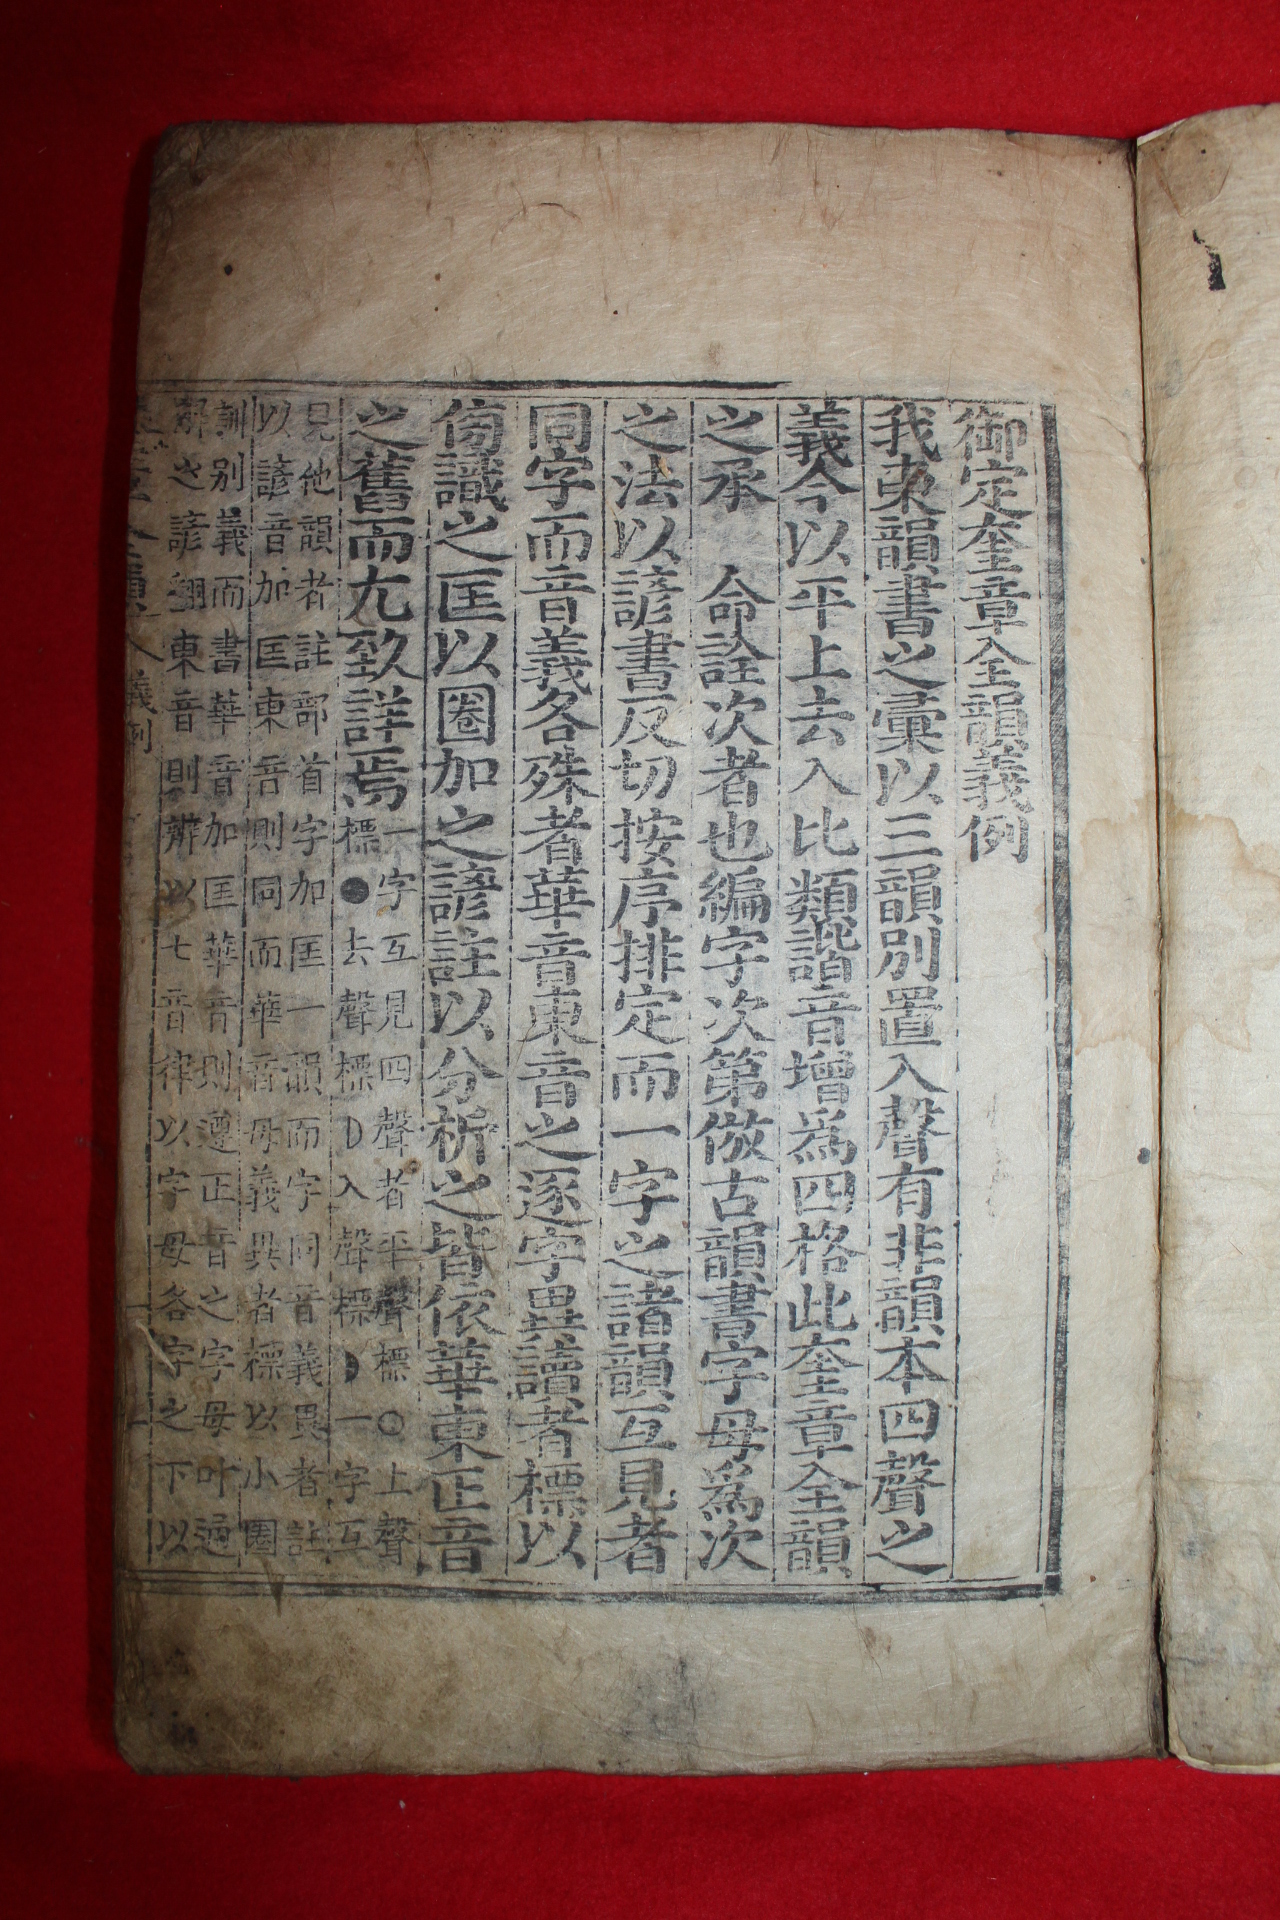 御定奎章全韻義例
我東韻書之彙以三韻別置入聲有非韻本四聲之
義今以平上去入比類諧音增爲四格此奎章全韻
之承 命註次者也編字次第倣古韻書字母爲次
之法以諺書反切按序排定而一字之諸韻互見者
同字而音義各殊者華音東音之逐字異讀者標以
傍識之匡以圈加之諺註以分析之皆依華東正音
之舊而尤致詳焉
一字互見四聲者平聲標○上聲
標●去聲標☽入聲標◗一字互
見他韻者註部首字加匡一韻而字同音義異者註
以諺音加匡東音則同而華音母義異者標以小圈
訓別義而書華音加匡華音則遵正音之字母叶通
解之諺翻東音則辨以七音律以字母各字之下以
全韻 義例